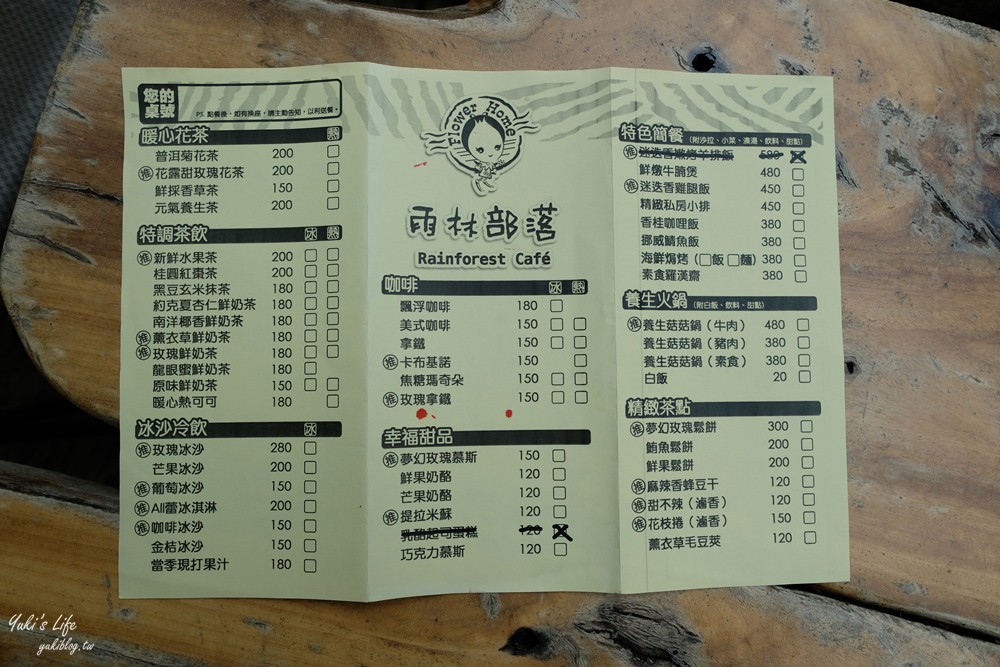 您的桌號
PS. 點餐後，如有換座，請主動告知，以利送餐。
暖心花茶 熱
普洱菊花茶 200
推 花露甜玫瑰花茶 200
鮮採香草茶 150
元氣養生茶 200
特調茶飲 冰 熱
推 新鮮水果茶 200
桂圓紅棗茶 200
黑豆玄米抹茶 180
約克夏杏仁鮮奶茶 180
南洋椰香鮮奶茶 180
推 薰衣草鮮奶茶 180
推 玫瑰鮮奶茶 180
龍眼蜜鮮奶茶 180
原味鮮奶茶 150
暖心熱可可 180
冰沙冷飲 冰
推 玫瑰冰沙 280
芒果冰沙 200
推 葡萄冰沙 150
推 All蕾冰淇淋 200
推 咖啡冰沙 150
金桔冰沙 150
當季現打果汁 180
Flower Home
雨林部落
Rainforest Café
咖啡 冰 熱
飄浮咖啡 180
美式咖啡 150
拿鐵 150
推 卡布基諾 150
焦糖瑪奇朵 150
推 玫瑰拿鐵 150
幸福甜品
推 夢幻玫瑰慕斯 150
鮮果奶酪 120
芒果奶酪 120
推 提拉米蘇 120
乳酪起司蛋糕 120
巧克力慕斯 120
特色簡餐（附沙拉、小菜、濃湯、飲料、甜點）
推 迷迭香嫩烤羊排飯 580
鮮燉牛腩煲 480
推 迷迭香雞腿飯 450
精緻私房小排 450
香桂咖哩飯 380
挪威鯖魚飯 380
海鮮焗烤（□飯 □麵）380
素食羅漢齋 380
養生火鍋（附白飯、飲料、甜點）
推 養生菇菇鍋（牛肉） 480
養生菇菇鍋（豬肉） 380
養生菇菇鍋（素食） 380
白飯 20
精緻茶點
推 夢幻玫瑰鬆餅 300
鮪魚鬆餅 200
鮮果鬆餅 200
推 麻辣香蜂豆干 120
推 甜不辣（滷香） 120
推 花枝捲（滷香） 150
薰衣草毛豆莢 120
Yuki's Life
yukiblog.tw